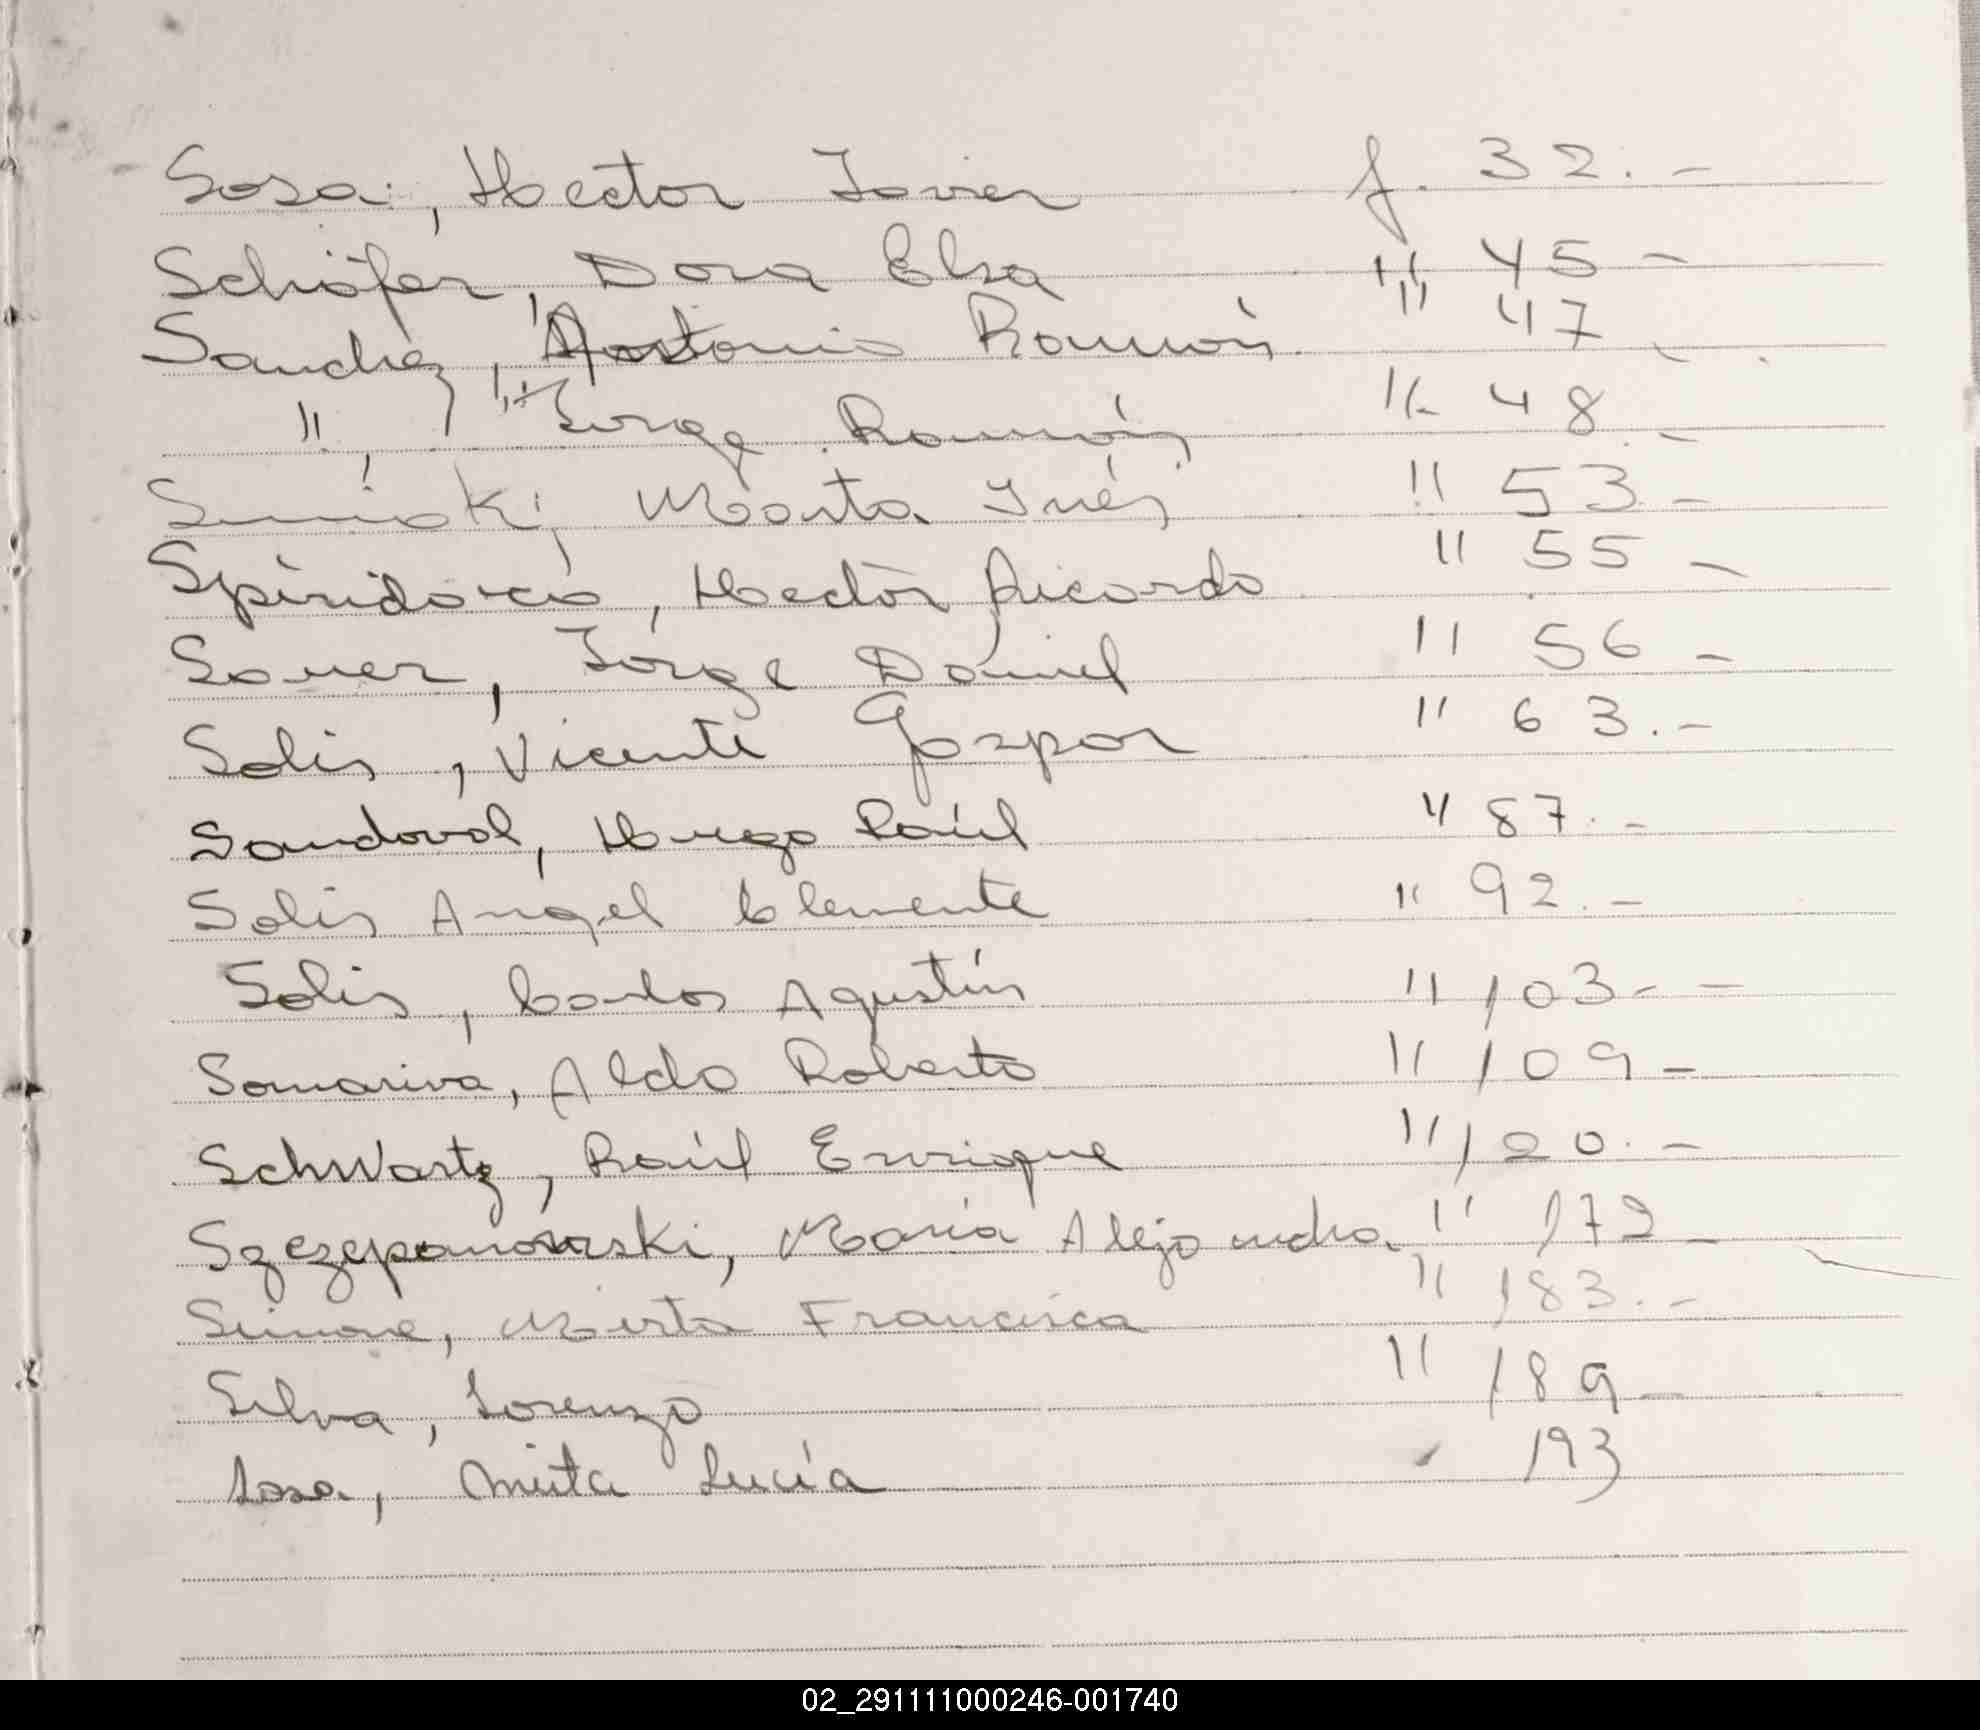 Sosa, Hector Javier f. 32.-
Schäfer, Dora Elsa " 45 -
Sanchez, Antonio Ramón " 47 -
" , Jorge Ramón " 48 -
Marta Inés " 53 -
Hector Ricardo " 55 -
Sauer, Jorge Daniel " 56 -
Solis, Vicente Gaspar " 63.-
Sandoval, Hugo Raúl " 87.-
Solis Angel Clemente " 92.-
Solis, Carlos Agustín " 103 - -
Somariva, Aldo Roberto " 109 -
Schwartz, Raúl Enrique " 120.-
Szczepanowski, María Alejandra " 172 -
Simone, Mirta Francisca " 183.-
Silva, Lorenzo " 189 -
Sosa, Mirta Lucía 193
02_291111000246-001740